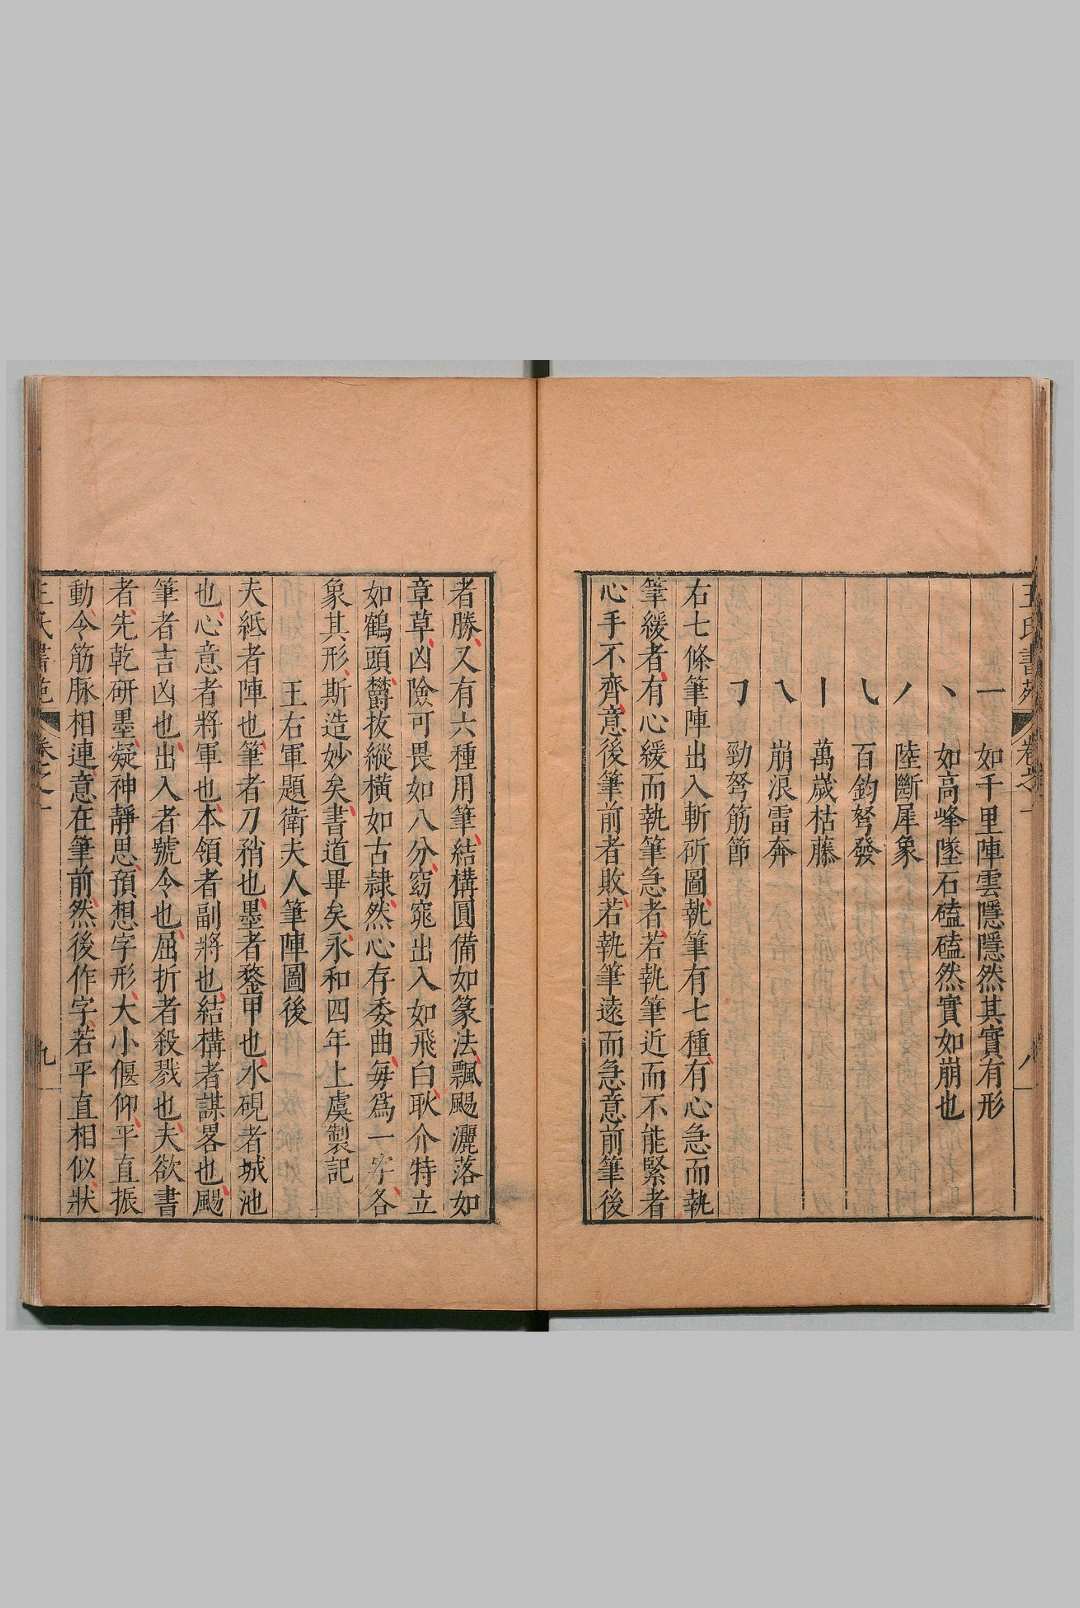 王氏書苑 卷之一 八
一 如千里陣雲隱隱然其實有形
丶 如高峰墜石磕磕然實如崩也
丿 陸斷犀象
乀 百鈞弩發
丨 萬歲枯藤
乀 崩浪雷奔
㇆ 勁弩筋節
右七條筆陣出入斬斫圖執筆有七種有心急而執
筆緩者有心緩而執筆急者若執筆近而不能緊者
心手不齊意後筆前者敗若執筆遠而急意前筆後
者勝又有六種用筆結構圓備如篆法飄颺灑落如
章草凶險可畏如八分窈窕出入如飛白耿介特立
如鶴頭鬱拔縱橫如古隸然心存委曲每爲一字各
象其形斯造妙矣書道畢矣永和四年上虞製記
王右軍題衛夫人筆陣圖後
夫紙者陣也筆者刀矟也墨者鍪甲也水硯者城池
也心意者將軍也本領者副將也結構者謀畧也颺
筆者吉凶也出入者號令也屈折者殺戮也夫欲書
者先乾研墨凝神靜思預想字形大小偃仰平直振
動令筋脉相連意在筆前然後作字若平直相似狀
王氏書苑 卷之一 九